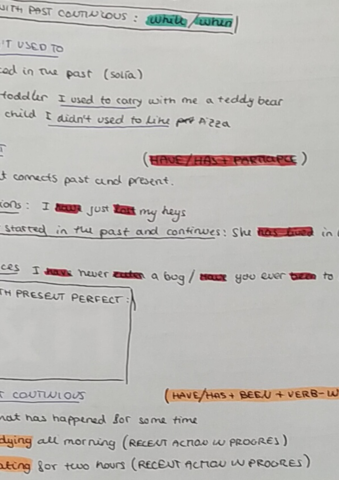 WITH PAST CONTINUOUS : while/when
'T USED TO
ed in the past (solía)
toddler I used to carry with me a teddy bear
child I didn't used to like pizza
(HAVE/HAS + PARTICIPLE)
t connects past and present.
ions : I have just lost my keys
started in the past and continues : She has lived in
ces I have never eaten a bug / Have you ever been to
TH PRESENT PERFECT :
T CONTINUOUS (HAVE/HAS + BEEN + VERB-IN
hat has happened for some time
dying all morning (RECENT ACTION IN PROGRES)
ating for two hours (RECENT ACTION IN PROGRES)